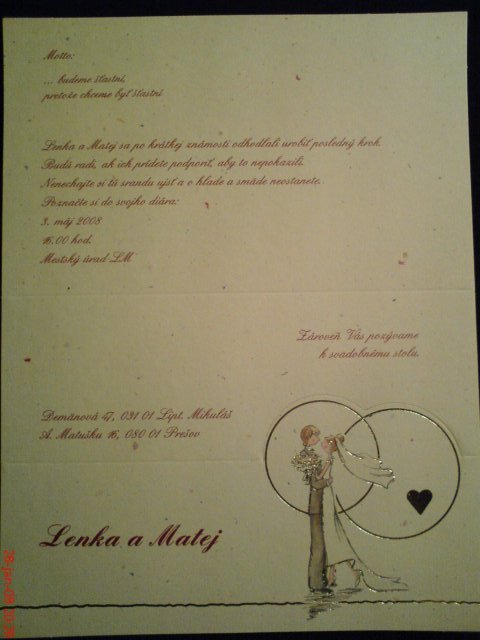 Motto:
... budeme šťastní,
pretože chceme byť šťastní
Lenka a Matej sa po krátkej známosti odhodlali urobiť posledný krok.
Budú radi, ak ich prídete podporiť, aby to nepokazili.
Nenechajte si tú srandu ujsť a o hlade a smäde neostanete.
Poznačte si do svojho diára:
3. máj 2008
16.00 hod.
Mestský úrad LM
Zároveň Vás pozývame
k svadobnému stolu.
Demänová 47, 031 01 Lipt. Mikuláš
A. Matušku 16, 080 01 Prešov
Lenka a Matej